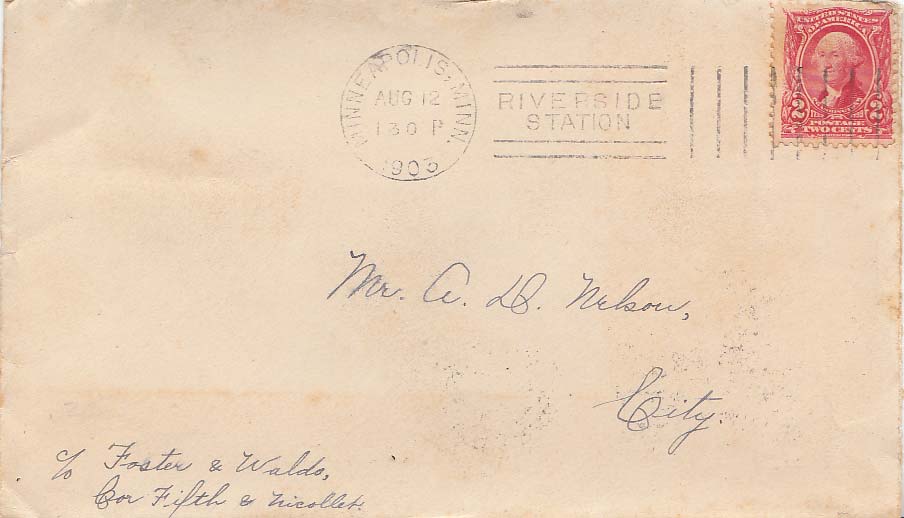 MINNEAPOLIS, MINN.
AUG 12
1 30 P
1903
RIVERSIDE
STATION
UNITED STATES
OF AMERICA
2 2
POSTAGE
TWO CENTS
Mr. A. D. Nelson,
City.
c/o Foster & Waldo,
Cor Fifth & Nicollet.